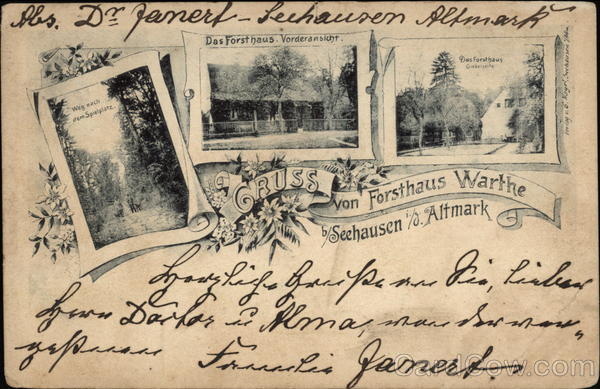 Abs. Dr Janert - Seehausen Altmark
Das Forsthaus. Vorderansicht.
Das Forsthaus
Giebelseite
Weg nach
dem Spielplatz.
GRUSS
von Forsthaus Warthe
b/Seehausen i/d. Altmark
Herzliche Grüße an Sie, lieber
Herr Doctor u Alma, von der ver„
geßenen Familie Janert.
CardCow.com